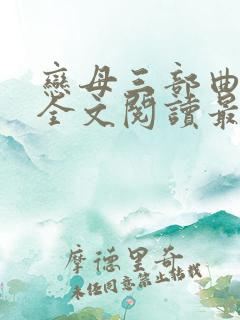 戀母三部曲
全文閱讀最
摩德里奇
未经同意禁止转载